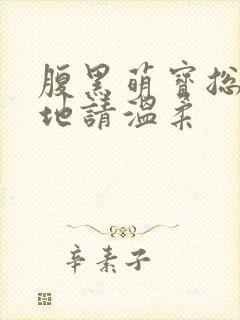 腹黑萌寶總
地請溫柔
辛素子